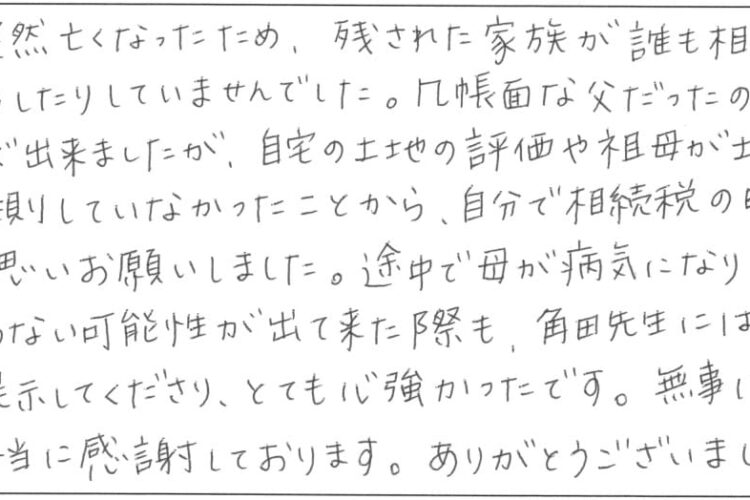 然亡くなったため、残された家族が誰も相
したりしていませんでした。几帳面な父だったの
出来ましたが、自宅の土地の評価や祖母が土
していなかったことから、自分で相続税の申
思いお願いしました。途中で母が病気になり
ない可能性が出て来た際も、角田先生には
示してくださり、とても心強かったです。無事に
当に感謝しております。ありがとうございまし